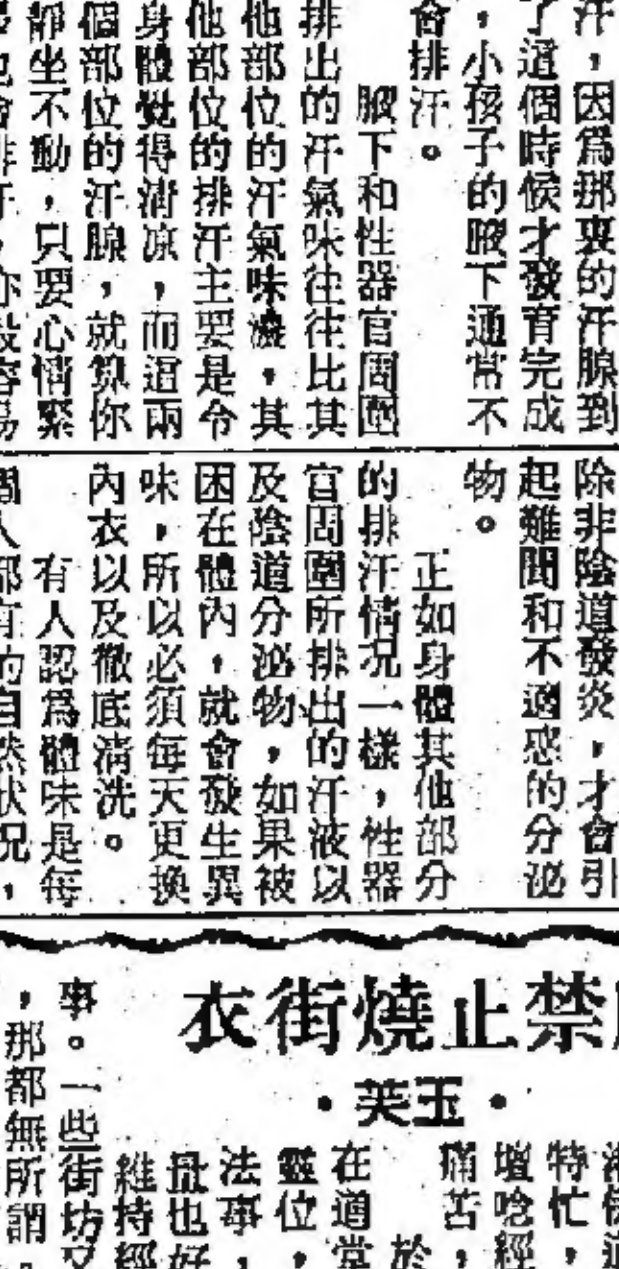 汗，因爲那裏的汗腺到
了這個時候才發育完成
，小孩子的腋下通常不
會排汗。
腋下和性器官周圍
排出的汗氣味往往比其
他部位的汗氣味濃，其
他部位的排汗主要是令
身體覺得清凉，而這兩
個部位的汗腺，就算你
靜坐不動，只要心情緊
除非陰道發炎，才會引
起難聞和不適感的分泌
物。
正如身體其他部分
的排汗情况一樣，性器
官周圍所排出的汗液以
及陰道分泌物，如果被
困在體內，就會發生異
味，所以必須每天更換
內衣以及徹底清洗。
有人認爲體味是每
人都有的自然狀況，
禁止燒街衣
•玉芙•
特忙，
壇唸經
痛苦，
於
在道堂
靈位，
法事，
批也好
維持經
事。一些街坊又
，那都無所謂